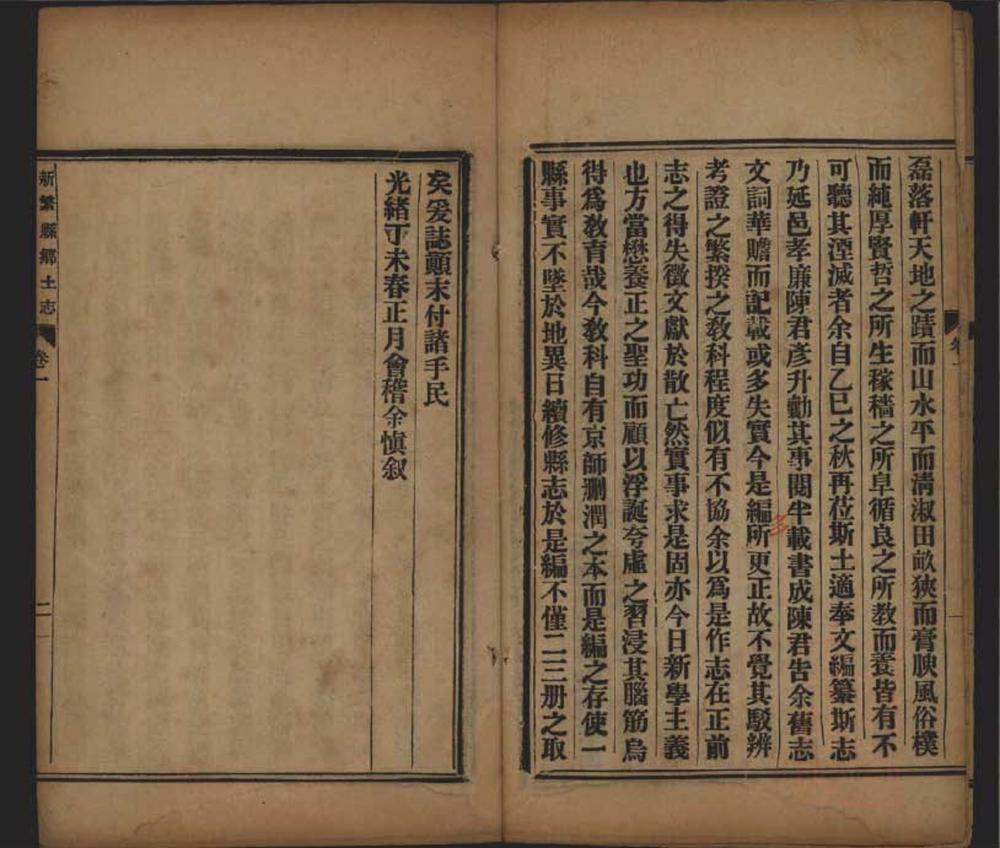 磊落軒天地之蹟而山水平而清淑田畝狹而膏腴風俗樸
而純厚賢哲之所生稼穡之所阜循良之所教而養皆有不
可聽其湮滅者余自乙巳之秋再莅斯土適奉文編纂斯志
乃延邑孝廉陳君彥升勷其事閱半載書成陳君告余舊志
文詞華贍而記載或多失實今是編所更正故不覺其駁辨
多
考證之繁揆之教科程度似有不協余以爲是作志在正前
志之得失徵文獻於散亡然實事求是固亦今日新學主義
也方當懋養正之聖功而顧以浮誕夸虛之習浸其腦筋烏
得爲教育哉今教科自有京師删潤之本而是編之存使一
縣事實不墜於地異日續修縣志於是編不僅二三册之取
卷一
矣爰誌顚末付諸手民
光緒丁未春正月會稽余愼叙
新繁縣鄉土志
卷一
二